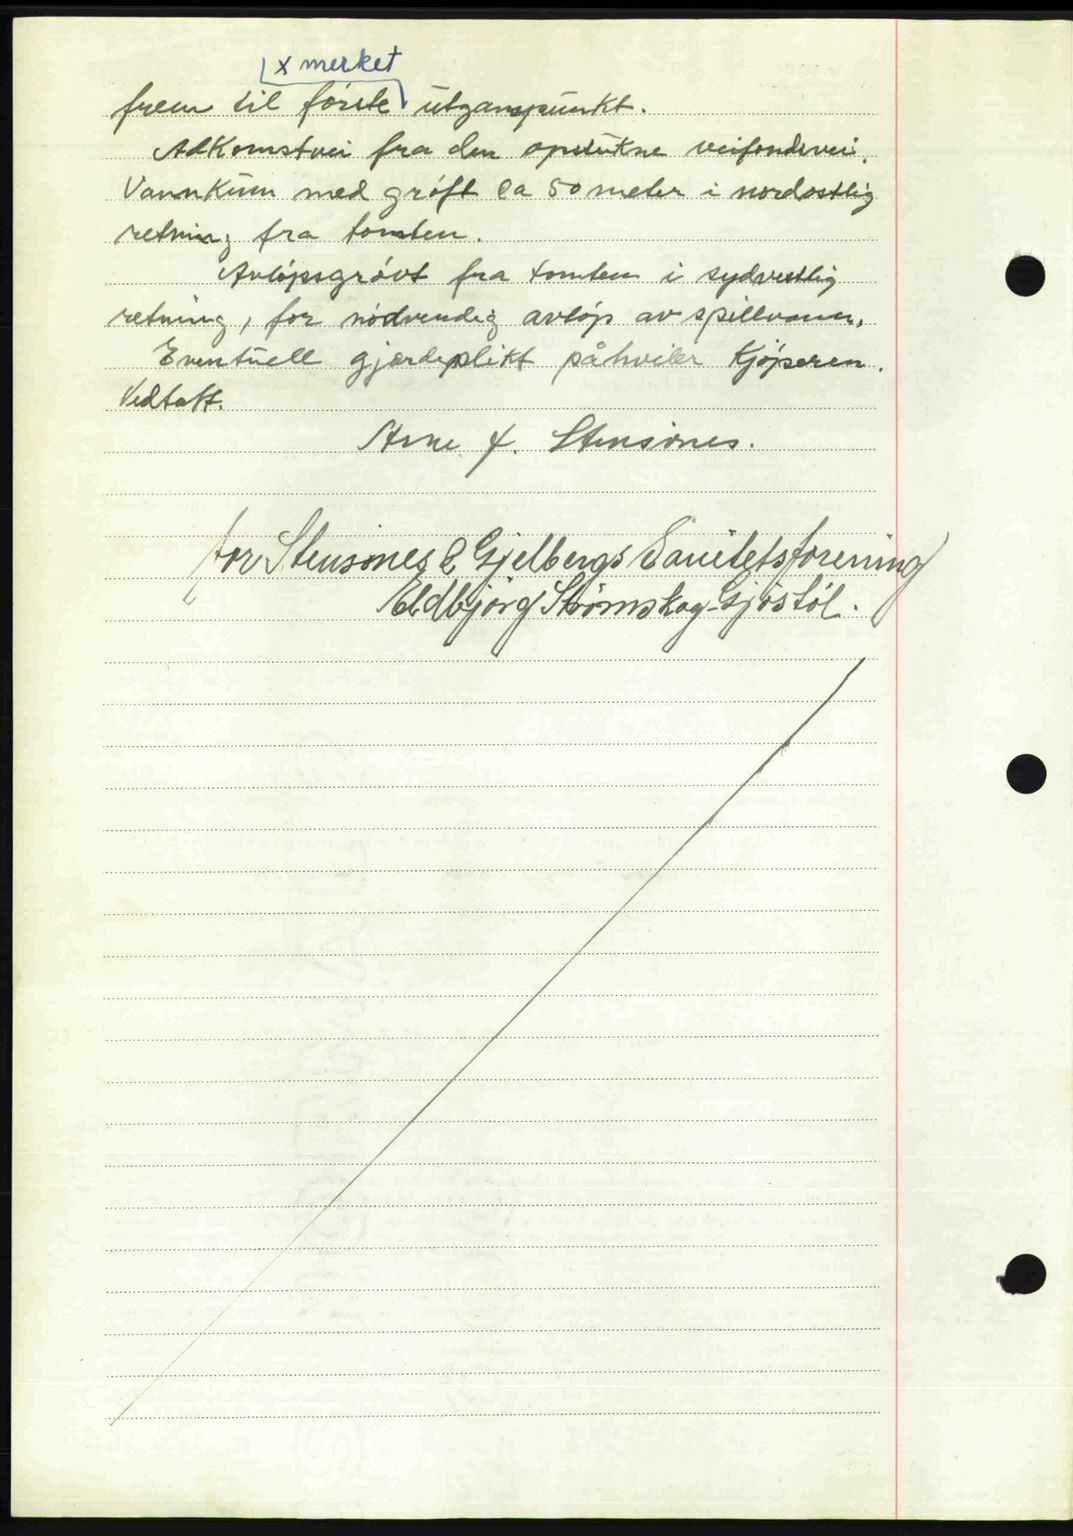 x merket
frem til første utganspunkt.
Adkomstvei fra den opstukne veifondsvei.
Vannkum med grøft ca 50 meter i nordostlig
retning fra tomten.
Avløpsgrøvt fra tomten i sydvestlig
retning, for nødvendig avløp av spillvann.
Eventuell gjærdeplikt påhviler kjøperen.
Vedtatt.
Arne J. Stensönes.
for Stensönes & Gjelbergs Sanitetsforening
Eldbjørg Strømskag-Gjöstöl.